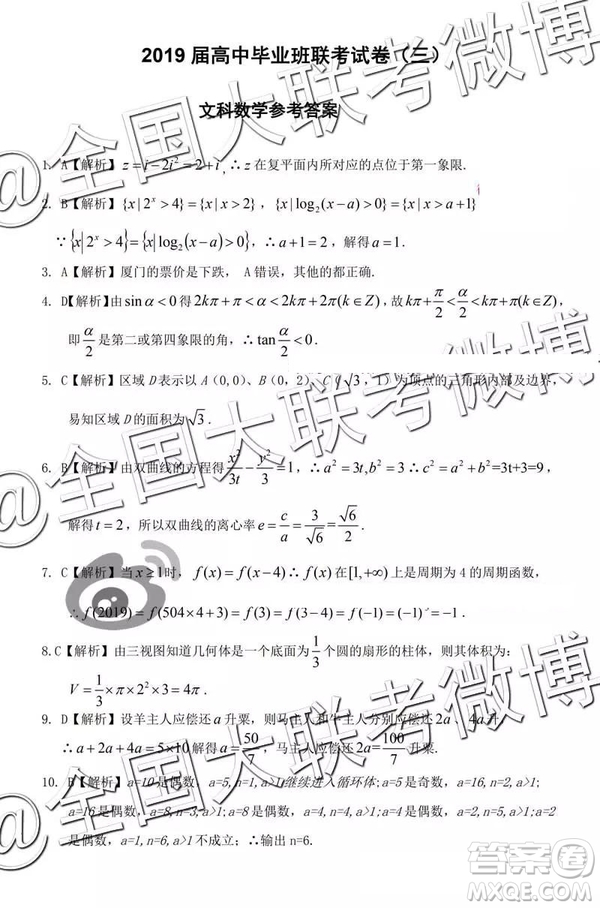 2019 届高中毕业班联考试卷（三）
文科数学参考答案
1. A【解析】z=i-2i²=2+i，∴z在复平面内所对应的点位于第一象限.
2. B【解析】{x|2ˣ>4}={x|x>2}，{x|log₂(x-a)>0}={x|x>a+1}
∵{x|2ˣ>4}={x|log₂(x-a)>0}，∴a+1=2，解得a=1.
3. A【解析】厦门的票价是下跌，A 错误，其他的都正确.
4. D【解析】由sinα<0得2kπ+π<α<2kπ+2π(k∈Z)，故kπ+π/2<α/2<kπ+π(k∈Z)，
即α/2是第二或第四象限的角，∴tan α/2<0.
5. C【解析】区域 D表示以 A（0,0）、B（0，2）、C（√3，1）为顶点的三角形内部及边界，
易知区域 D的面积为√3.
6. B【解析】由双曲线的方程得x²/3t-y²/3=1，∴a²=3t,b²=3∴c²=a²+b²=3t+3=9，
解得t=2，所以双曲线的离心率e=c/a=3/√6=√6/2.
7. C【解析】当x≥1时，f(x)=f(x-4)∴f(x)在[1,+∞)上是周期为 4 的周期函数，
∴f(2019)=f(504×4+3)=f(3)=f(3-4)=f(-1)=(-1)²=1
8. C【解析】由三视图知道几何体是一个底面为1/3个圆的扇形的柱体，则其体积为：
V=1/3×π×2²×3=4π.
9. D【解析】设羊主人应偿还a升粟，则马主人和牛主人分别应偿还2a、4a升，
∴a+2a+4a=5×10解得a=50/7，马主人应偿还2a=100/7升粟.
10. B【解析】a=10是偶数，a=5,n=1,a>1继续进入循环体；a=5是奇数，a=16,n=2,a>1;
a=16是偶数，a=8,n=3,a>1;a=8是偶数，a=4,n=4,a>1;a=4是偶数，a=2,n=5,a>1;a=2
是偶数，a=1,n=6,a>1 不成立；∴输出 n=6.
@全国大联考微博
@全国大联考微博
@全国大联考微博
答案圈
MXQE.COM